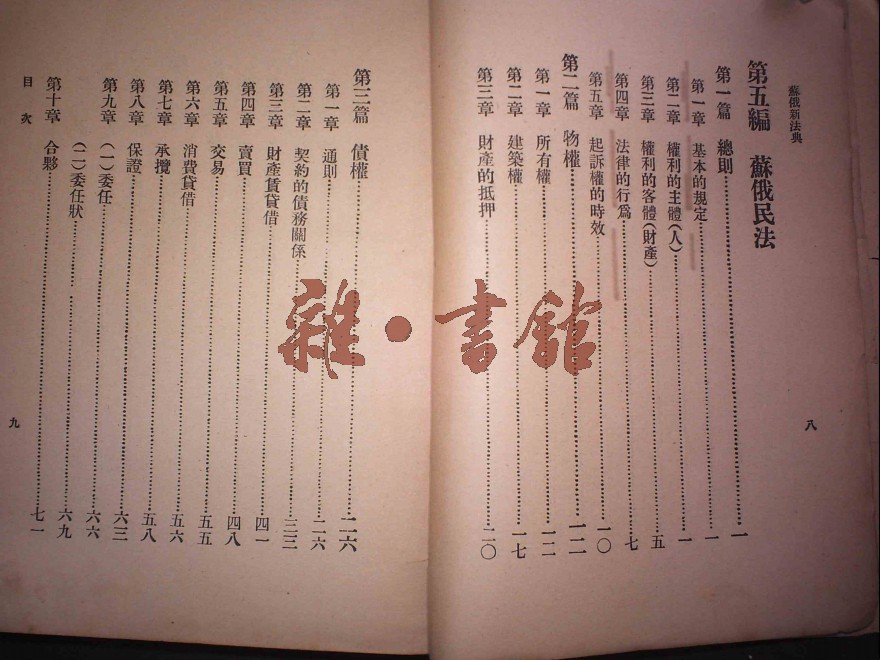 蘇俄新法典
八
第五編 蘇俄民法
第一篇 總則…一
第一章 基本的規定…一
第二章 權利的主體(人)…一
第三章 權利的客體(財產)…五
第四章 法律的行為…七
第五章 起訴權的時效…一〇
第二篇 物權…一二
第一章 所有權…一二
第二章 建築權…一七
第三章 財產的抵押…二〇
第三篇 債權…二六
第一章 通則…二六
第二章 契約的債務關係…三三
第三章 財產賃貸借…四一
第四章 賣買…四八
第五章 交易…五五
第六章 消費貸借…五六
第七章 承攬…五八
第八章 保證…六三
第九章 (一)委任…六六
(二)委任狀…六九
第十章 合夥…七一
目次
九
雜·書館